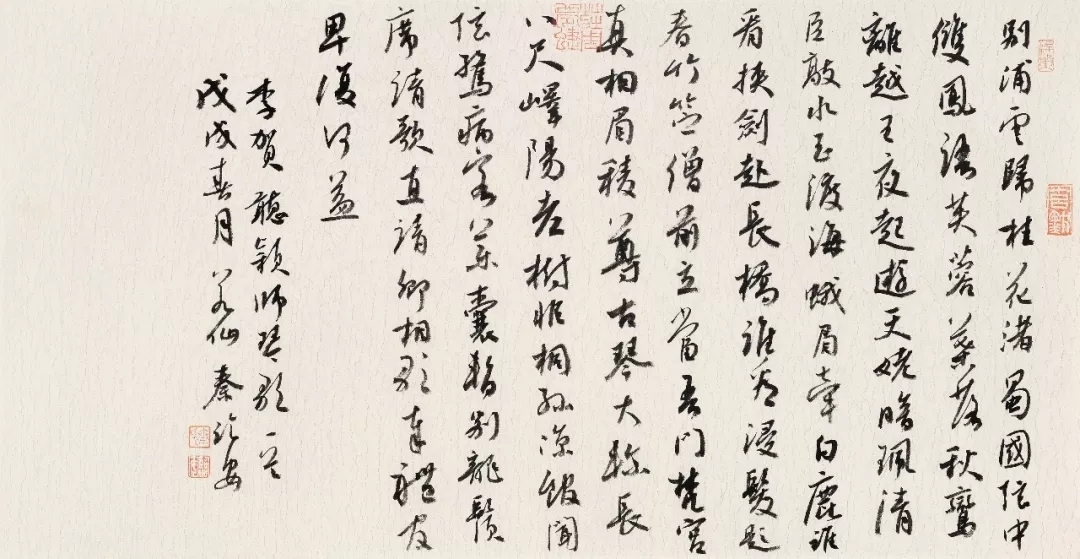 别浦雲歸桂花渚蜀國弦中
雙鳳語芙蓉葉落秋鸞
離越王夜起遊天姥暗珮清
臣敲水玉渡海蛾眉牽白鹿誰
看挾劍赴長橋誰看浸髮題
春竹竺僧前立當吾門梵宮
真相眉稜尊古琴大軫長
八尺嶧陽老樹非桐孫涼館聞
弦驚病客藥囊暫别龍鬚
席請歌直請卿相歌奉禮官
卑復何益
李賀聽穎師琴歌一首
戊戌春月 秦